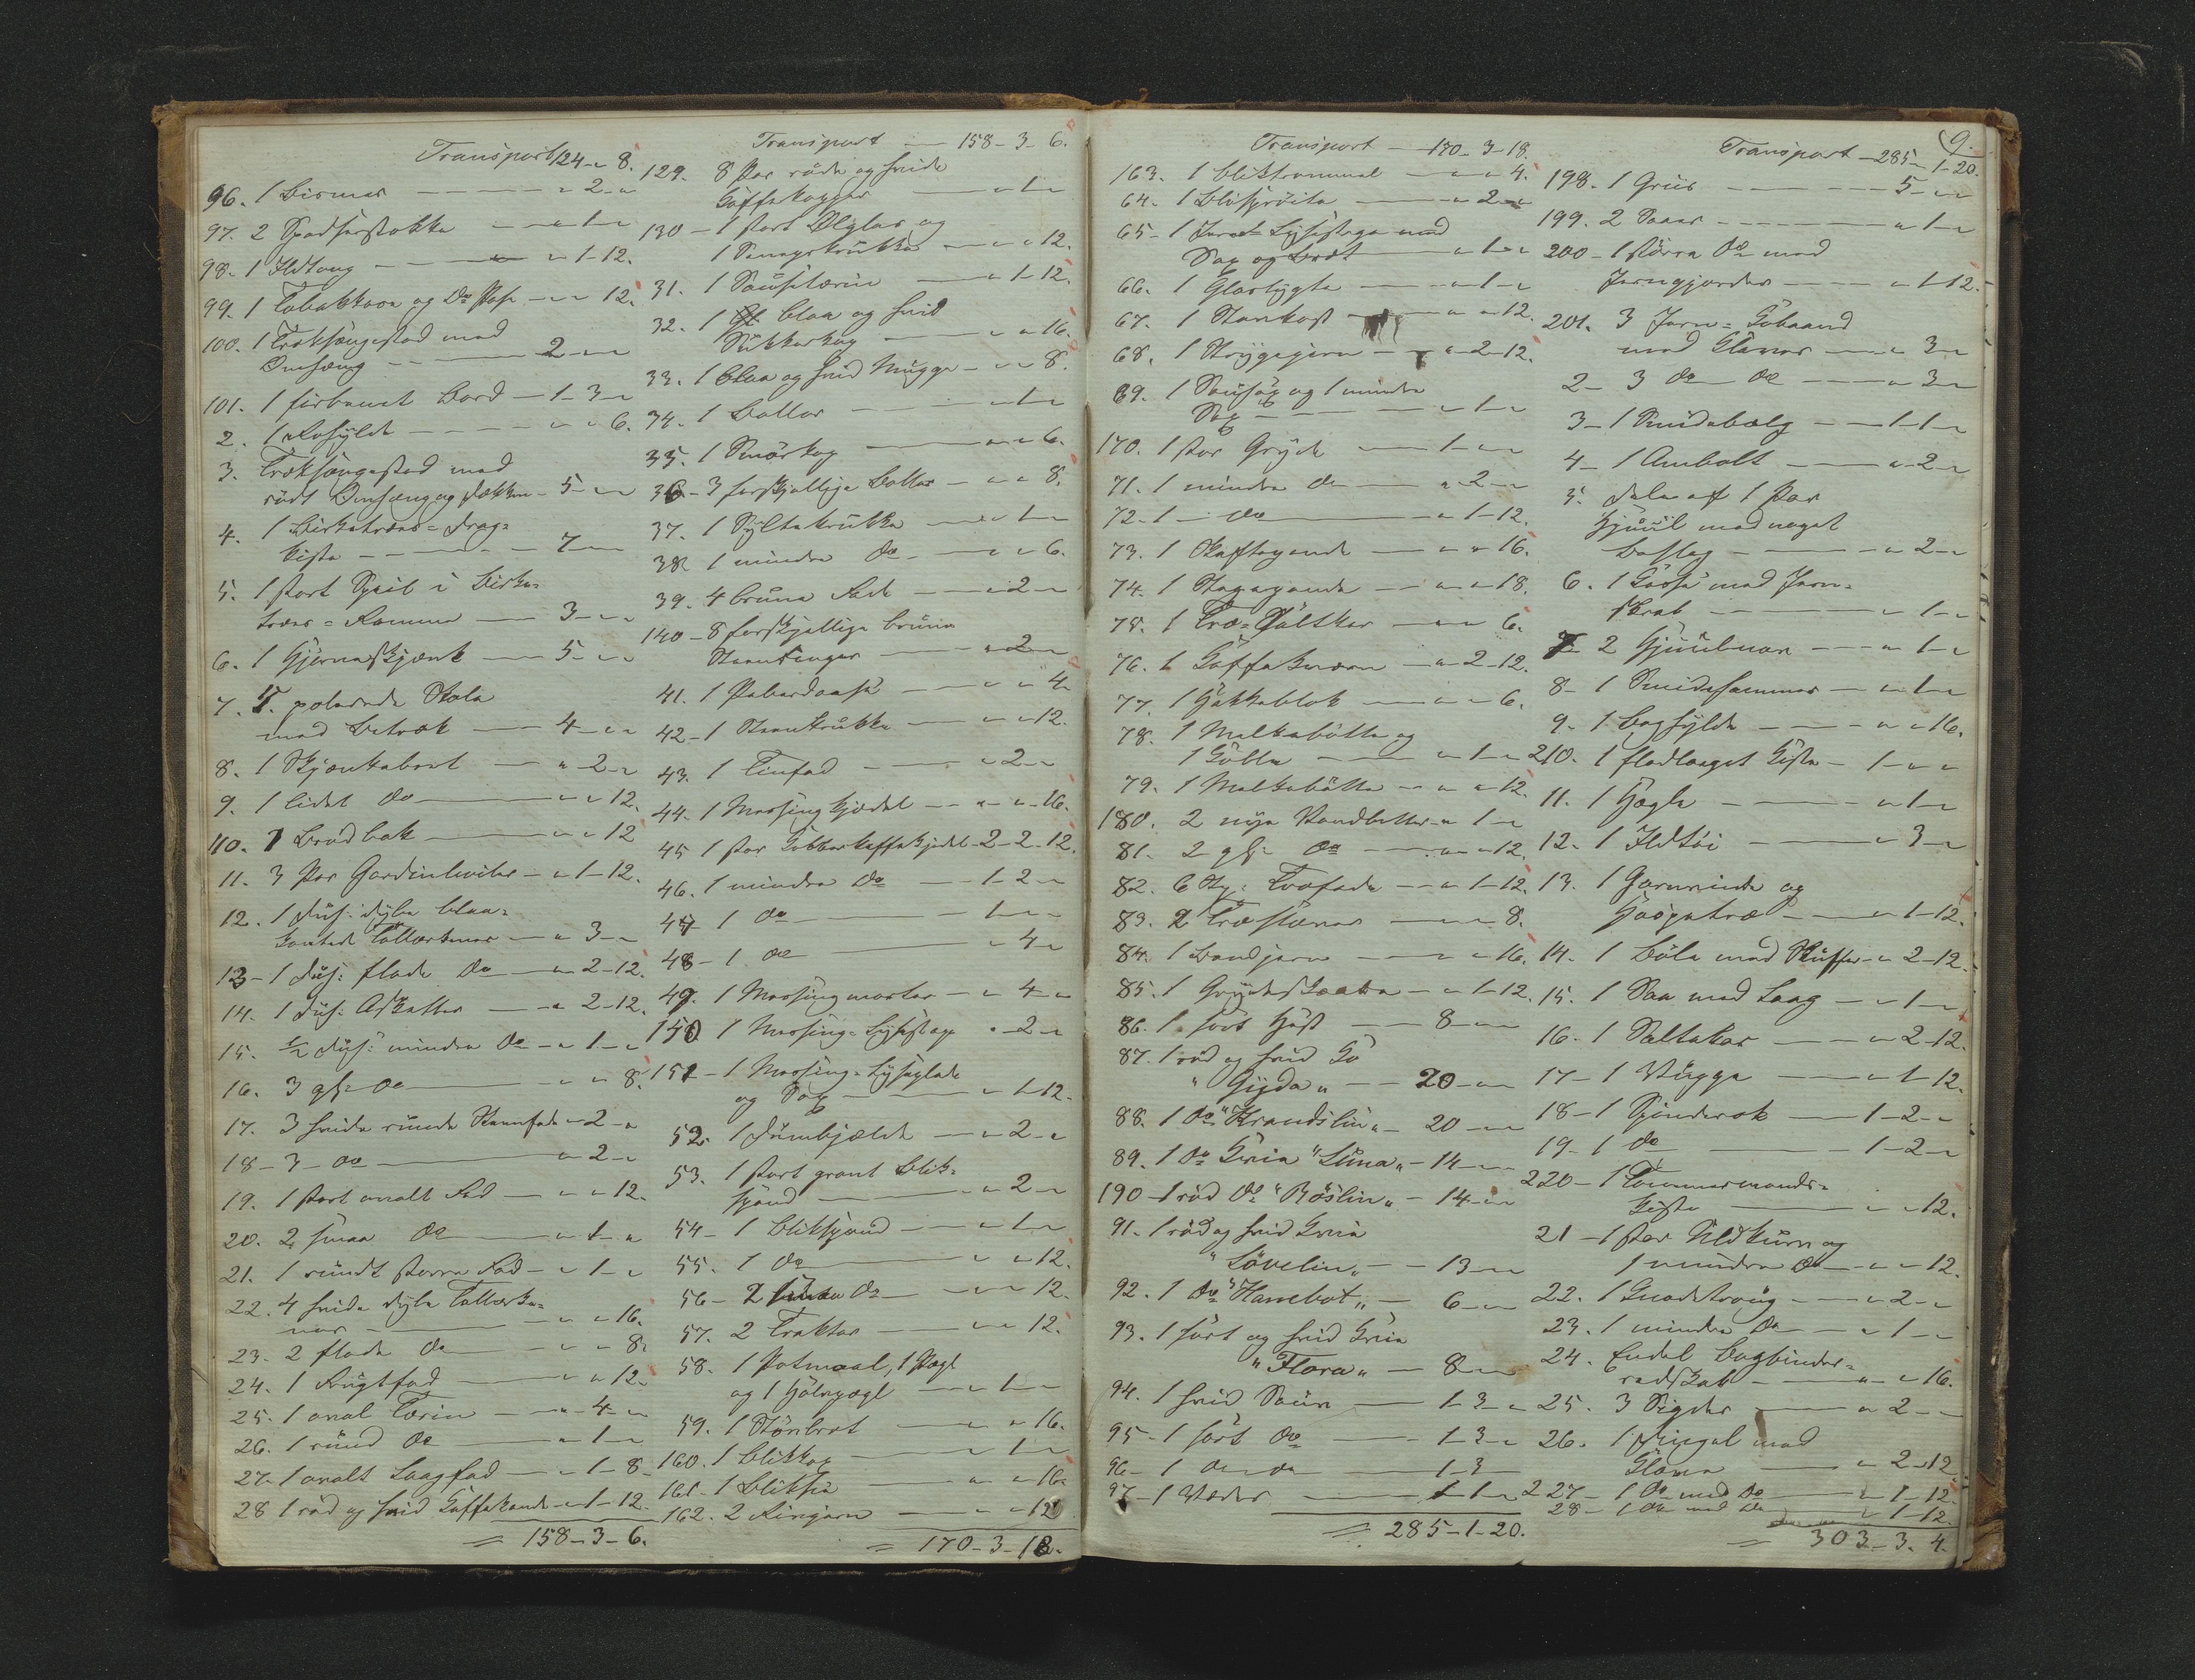 Transport 124 - " 8.
96. 1 Bismer - " 2 - "
97. 2 Spadserstokke - " 1 - "
98. 1 Ildtang - " 1 - 12.
99. 1 Tobakkaa og Do Pose - " " 12.
100. 1 Træksængested med
Omhæng - 2 - " "
101. 1 firkanet Bord - 1 - 3 - "
2. 1 Roshylde - " " 6.
3. Træksængested med
rødt Omhæng og Dækken - 5 - " "
4. 1 Birketræes = Drag=
kiste - 7 - " "
5. 1 stort Speil i Birke=
træes = Ramme - 3 - " "
6. 1 Hjørneskjænk - 5 - " "
7. 5. polerede Stole
med Betræk - 4 - " "
8. 1 Skjænkebret - " 2 - "
9. 1 lidet Do - " " 12.
110. 1 Brødbak - " " 12
11. 3 Par Gardinhviler - " 1 - 12.
12. 1 Dus: dybe blaa=
kantede Tallerkener - " 3 - "
13 - 1 Dus: flade Do - " 2 - 12.
14. 1 Dus: Asketter - " 2 - 12.
15. ½ Dus: mindre Do - " 1 - "
16. 3 gl: Do - " " 8.
17. 3 hvide runde Steenfade - " 2 - "
18 - 3 - Do - " 2 - "
19. 1 stort ovalt Fad - " " 12.
20. 2 smaa Do - " 1 - "
21. 1 rundt større Fad - " 1 - "
22. 4 hvide dybe Tallerke=
ner - " " 16.
23. 2 flade Do - " " 8.
24. 1 Frugtfad - " " 12.
25. 1 oval Terin - " 4 - "
26. 1 rund Do - " 1 - "
27. 1 ovalt Laagfad - " 1 - 8.
28 1 rød og hvid Kaffekande - " 1 - 12.
= 158 - 3 - 6.
Transport - 158 - 3 - 6.
129. 8 Par røde og hvide
Kaffekopper - " 1 - "
130 - 1 stort Ølglas og
1 Senopskrukke - " " 12.
31. 1 Sausetærin - " 1 - 12.
32. 1 blaa og hvid
Sukkerkop - " " 16.
33. 1 blaa og hvid Mugge - " " 8.
34. 1 Boller - " 1 - "
35. 1 Smørkop - " " 6.
36 - 3 forskjellige Boller - " " 8.
37. 1 Syltekrukke - " 1 - "
38. 1 mindre Do - " " 6.
39. 4 brune Fade - " 2 - "
140 - 8 forskjellige brune
Steentinger - " 2 - "
41. 1 Peberdaase - " " 4.
42 - 1 Steenkrukke - " " 12.
43. 1 Tinfad - " 2 - "
44. 1 Messingkjedel - " " 16.
45 1 stor Kobberkaffekjedel - 2 - 2 - 12.
46. 1 mindre Do - 1 - 2 - "
47 1 Do - 1 - " "
48 - 1 Do - " 4 - "
49. 1 Messingmorter - " 4 - "
150 1 Messing = Lysestage - " 2 - "
151 - 1 Messing = Lyseplade
og Sax - " 1 - 12.
52. 1 Dumbjælde - " 2 - "
53. 1 stort grønt Blik=
spand - " 2 - "
54 - 1 Blikspand - " 1 - "
55. 1 Do - " " 12.
56 - 2 Do - " " 12.
57. 2 Trakter - " " 12.
58. 1 Potmaal, 1 Pægl
og 1 Halvpægl - " 1 - "
59. 1 Stønbret - " " 16.
160. 1 Blikkop - " 1 - "
161 - 1 Bliksi - " " 16.
162. 2 Ringjern - " " 12
= 170 - 3 - 18.
Transport - 170 - 3 - 18.
163. 1 Bliktrommel - " " 4.
64. 1 Bliksprøite - " 2 - "
65 - 1 Jern = Lysestage med
Sax og Bræt - " 1 - "
66. 1 Glaslygte - " 1 - "
67. 1 Steenkost - " " 12.
68. 1 Strygejern - " 2 - 12.
69. 1 Sausax og 1 mindre
Sax - " 1 - "
170. 1 stor Gryde - 1 - " "
71. 1 mindre Do - " 2 - "
72 - 1 - Do - " 1 - 12.
73. 1 Skaftepande - " " 16.
74. 1 Stegepande - " " 18.
75. 1 Træ = Saltkar - " " 6.
76. 1 Kaffekværn - " 2 - 12.
77. 1 Hakkeblok - " " 6.
78. 1 Melkebøtte og
1 Kolle - " 1 - "
79. 1 Melkebøtte - " " 12.
180. 2 nye Vandbøtter - " 1 - "
81. 2 gl: Do - " " 12.
82. 6 Stk: Træfade - " 1 - 12.
83. 2 Træstamper - " " 8.
84. 1 Brødjern - " " 16.
85. 1 Grydeskrabe - " 1 - 12.
86. 1 sort Hest - 8 - " "
87. 1 rød og hvid Ko
"Gyda" - 20 - " "
88. 1 Do "Krandslin" - 20 - " "
89. 1 Do Qvie "Luna" - 14 - " "
190 - 1 rød Do "Røslin" - 14 - " "
91. 1 rød og hvid Qvie
"Løvelin" - 13 - " "
92. 1 Do "Harrebot" - 6 - " "
93. 1 sort og hvid Qvie
"Flora" - 8 - " "
94. 1 hvid Sau - 1 - 3 - "
95 - 1 sort Do - 1 - 3 - "
96 - 1 Do Do - 1 - 3 -
97 - 1 Væder - 1 - 1 - "
= 285 - 1 - 20.
9.
Transport - 285 - 1 - 20.
198. 1 Griis - 5 - " "
199. 2 Saaer - " 1 - "
200 - 1 større Do med
Jerngjorder - " 1 - 12.
201. 3 Jern = Kobaand
med Klaver - " 3 - "
2 - 3 Do Do - " 3 - "
3 - 1 Smidebælg - 1 - 1 - "
4 - 1 Ambolt - " 2 - "
5. Dele af 1 Par
Hjuul med noget
Beslag - " 2 - "
6. 1 Kasse med Jern=
skrab - " 1 - "
7 2 Hjuulnav - " 1 - "
8 - 1 Smidehammer - " 1 - "
9. 1 Boghylde - " " 16.
210. 1 fladlaaget Kiste - 1 - " "
11. 1 Hegle - " 1 - "
12. 1 Ildtøi - " 3 - "
13. 1 Garnvinde og
Haspetræ - " 1 - 12.
14. 1 Bøle med Skuffer - " 2 - 12.
15. 1 Saa med Laag - " 1 - "
16. 1 Saltekar - " 2 - 12.
17 - 1 Vugge - " 1 - 12.
18 - 1 Spinderok - 1 - 2 - "
19 - 1 Do - 1 - 2 - "
220 - 1 Tømmermands=
kiste - " " 12.
21 - 1 stor Uldkurv og
1 mindre Do - " " 12.
22. 1 Knadetroug - " 2 - "
23. 1 mindre Do - " 1 - "
24. Endel Bogbinder=
redskab - " " 16.
25. 3 Sigder - " 2 - "
26. 1 Pleiel med
- " 2 - 12
227 - 1 Do med Do - " 1 - 12.
28 - 1 Do med Do " 1 - 12.
= 303 - 3 - 4.